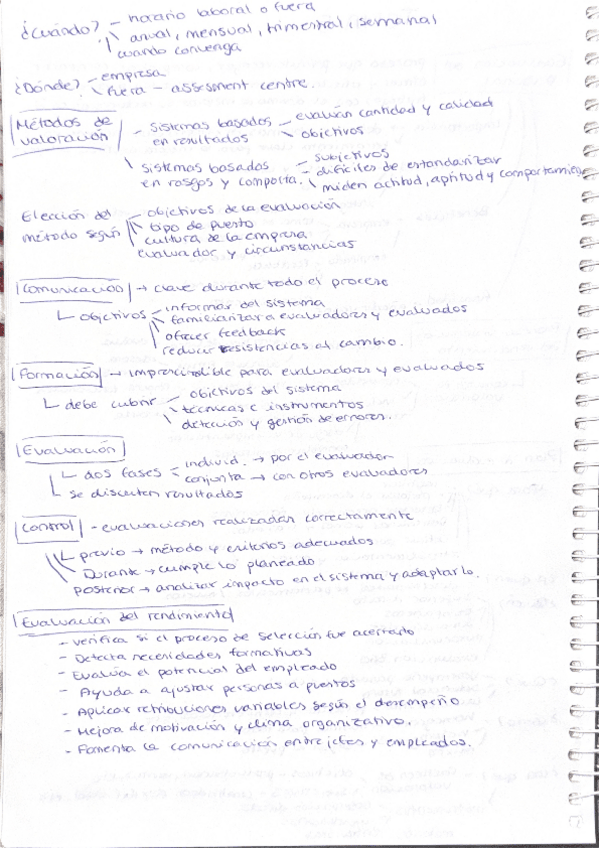 ¿Cuándo? - horario laboral o fuera
\ anual, mensual, trimestral, semanal
\ cuando convenga
¿Dónde? - empresa
\ fuera - assesment centre.
Métodos de valoración
- Sistemas basados en resultados - evaluan cantidad y calidad
\ objetivos
\ sistemas basados en rasgos y comporta. - subjetivos
- difíciles de estandarizar
\ miden actitud, aptitud y comportamien
Elección del método según - objetivos de la evaluación
\ tipo de puesto
\ cultura de la empresa
evaluador y circunstancias
Comunicación → clave durante todo el proceso
└ objetivos - informar del sistema
\ familiarizar a evaluadores y evaluados
\ ofrecer feedback
reducir resistencias al cambio.
Formación → imprescindible para evaluadores y evaluados
└ debe cubrir - objetivos del sistema
\ técnicas e instrumentos
\ detección y gestión de errores.
Evaluación
└ dos fases - individ. → por el evaluador
conjunta → con otros evaluadores
└ se discuten resultados
Control - evaluaciones realizadas correctamente
└ previo → método y criterios adecuados
\ Durante → cumple lo planeado
posterior → analizar impacto en el sistema y adaptarlo.
Evaluación del rendimiento
- verifica si el proceso de selección fue acertado
- Detecta necesidades formativas
- Evalúa el potencial del empleado
- Ayuda a ajustar personas a puestos
- Aplicar retribuciones variables según el desempeño
- Mejora de motivación y clima organizativo.
- Fomenta la comunicación entre jefes y empleados.